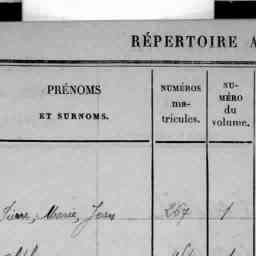 RÉPERTOIRE A
PRÉNOMS
ET SURNOMS.
NUMÉROS
ma-
tricules.
NU-
MÉRO
du
volume.
Pierre, Marie, Jean 267 1